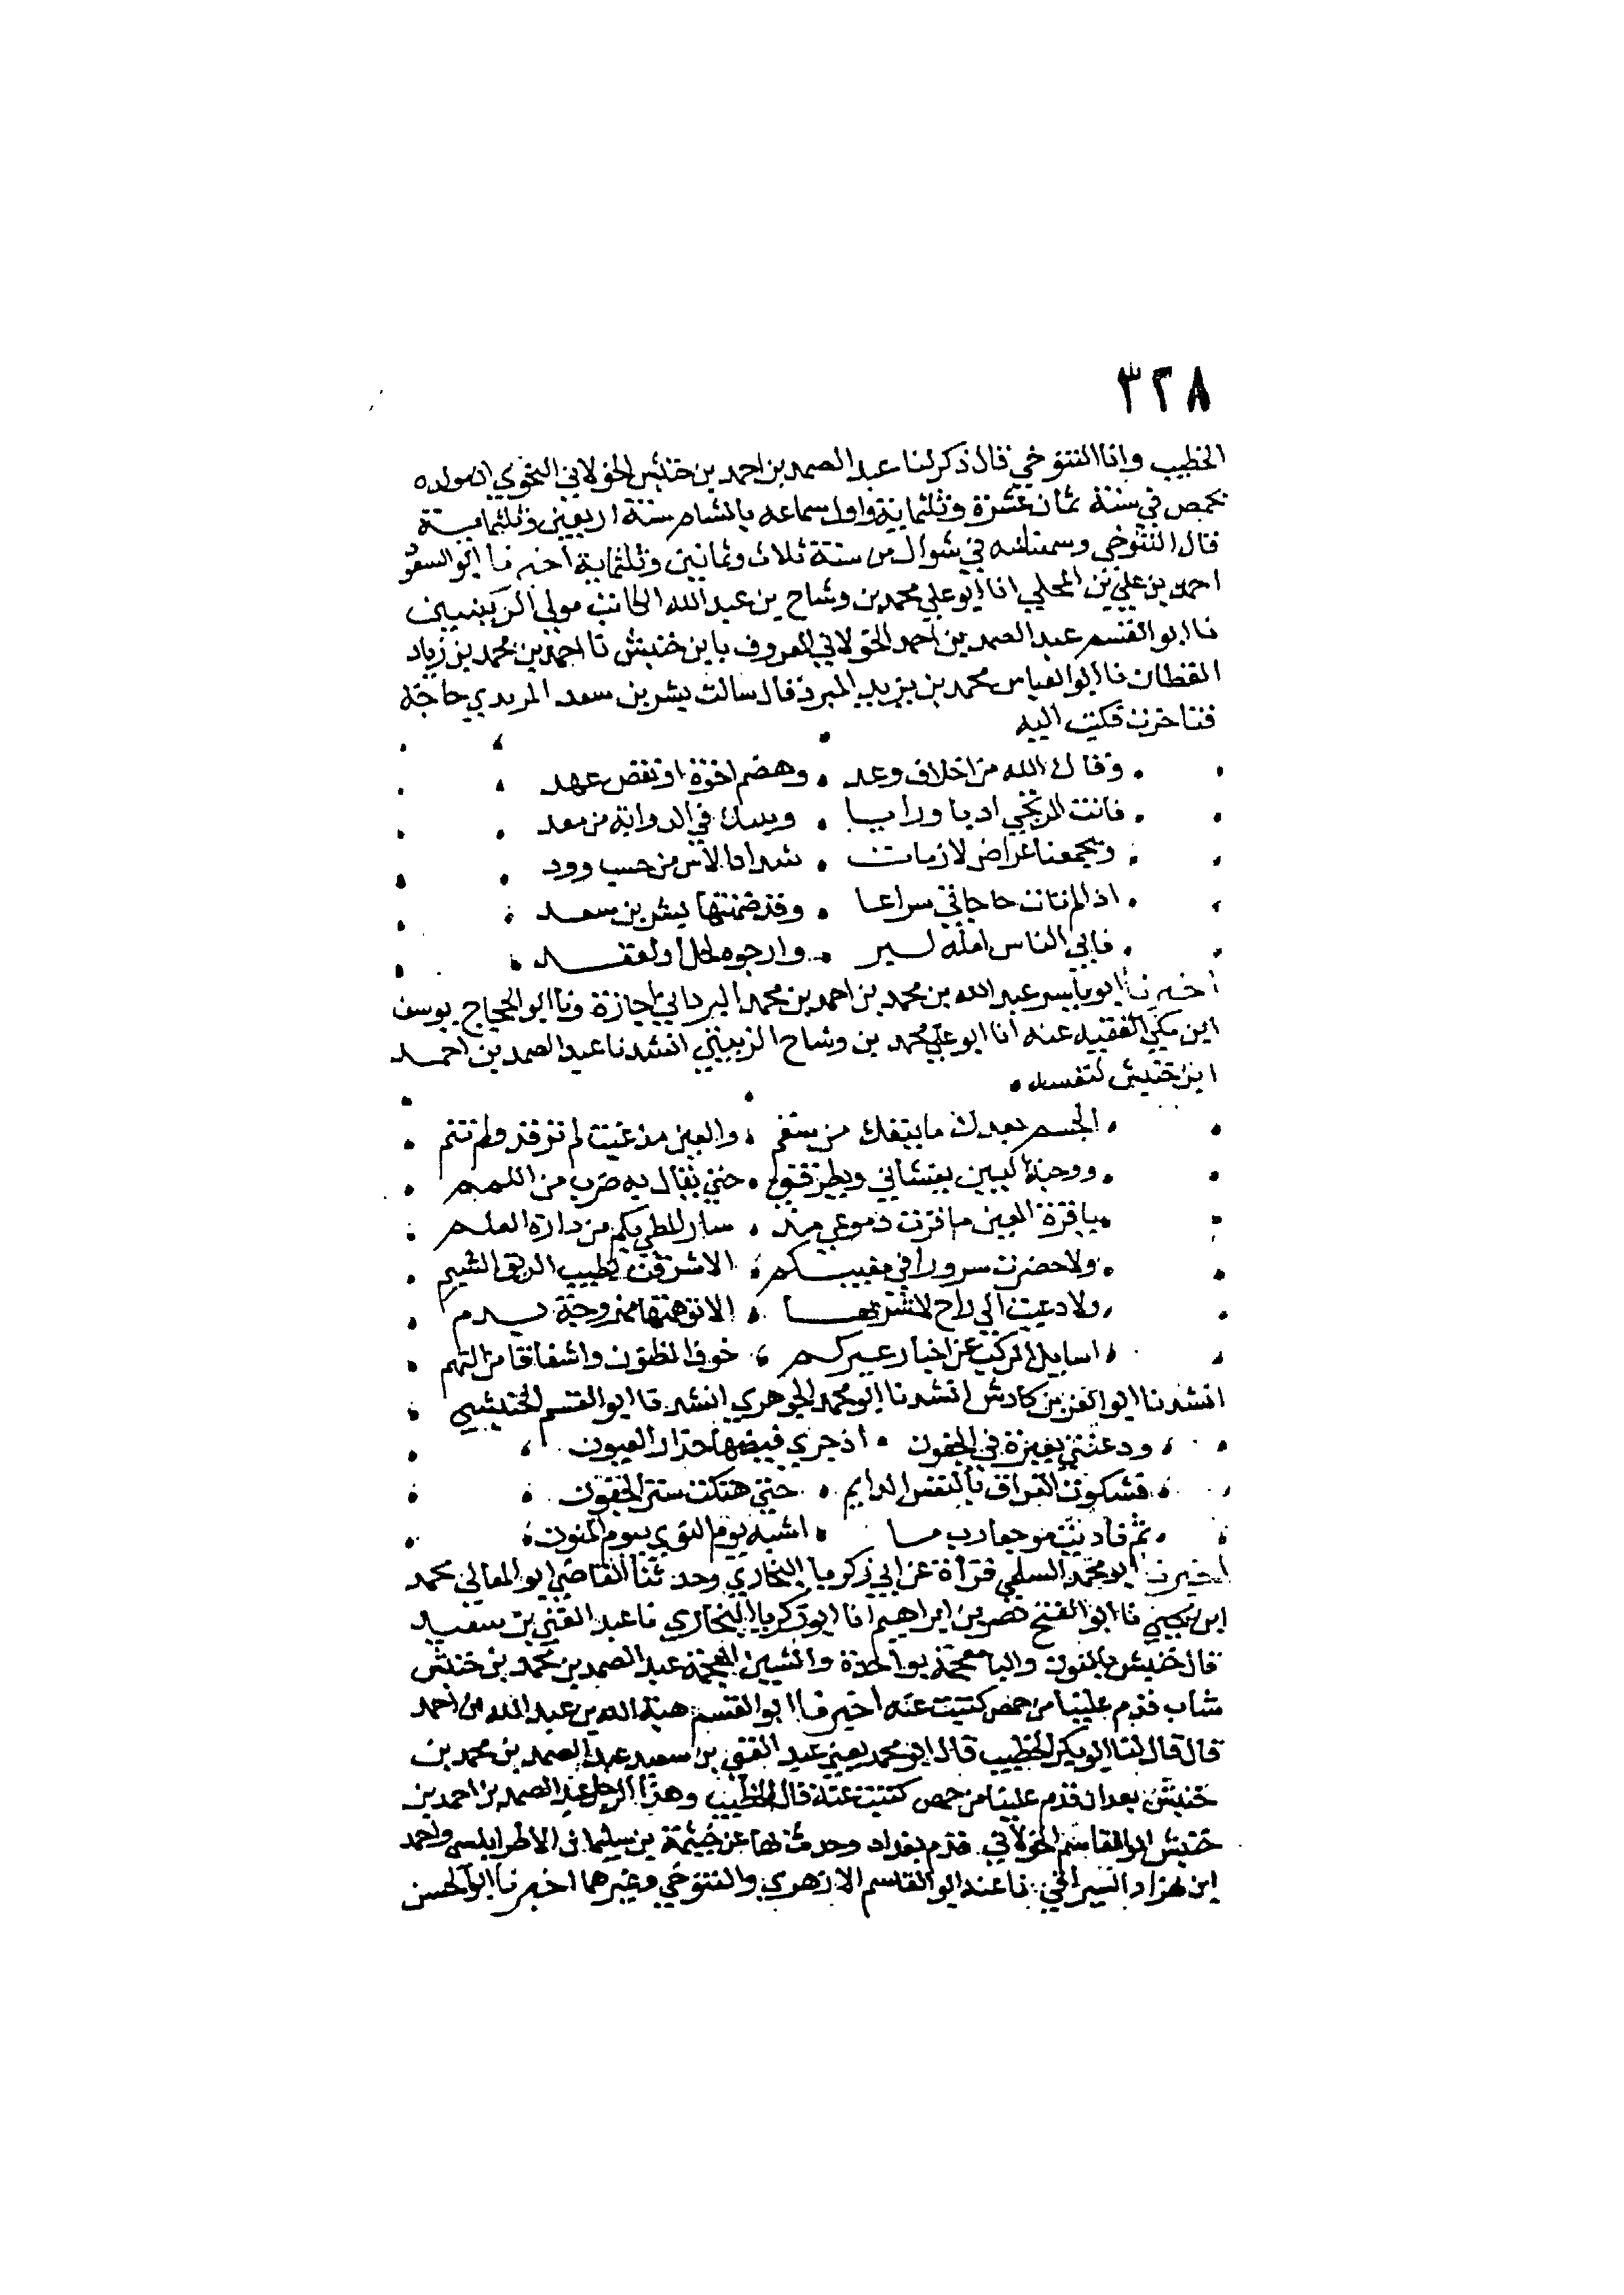 ٣٢٨
الخطيب وانا التنوخي قال ذكر لنا عبد الصمد بن احمد بن خنبش الخولاني النحوي ان مولده
بحمص في سنة ثمان عشرة وثلثماية واول سماعه بالشام سنة اربعين وثلثماية
قال التنوخي وسمعنا منه في شوال من سنة ثلاث وثمانين وثلثماية اخبرنا ابو السعود
احمد بن علي بن المجلي انا ابو علي محمد بن وشاح بن عبد الله الكاتب مولى الزينبيين
نا ابو القسم عبد الصمد بن احمد الخولاني المعروف بابن خنبش نا احمد بن محمد بن زياد
القطان نا ابو العباس محمد بن يزيد المبرد قال سالت بشر بن سعد المرثدي حاجة
فتاخرت فكتبت اليه
وقاك الله من اخلاف وعد . وهضم اخوة او نقض عهد
فانت المرتجى ادبا ورايا . وبيتك في الرواية من معد
وتجمعنا اعراض لازمات . سدادا لاس من حسب وود
اذا لم تات حاجاتي سراعا . وقد ضمنتها بشر بن سعد
فاي الناس امله لبر . وارجوه لحل او لعقد
اخبرنا ابو ياسر عبد الله بن محمد بن احمد بن محمد البرداني اجازة ونا ابو الحجاج يوسف
ابن مكي الفقيه عنه انا ابو علي محمد بن وشاح الزينبي انشدنا عبد الصمد بن احمد
ابن خنبش لنفسه .
الجسم بعدك ما ينفك من سقم . والعين مذ غبت لم ترقد ولم تنم
ووحشة البين يغشاني ويطرقني . حتى يقال به ضرب من اللمم
يا قرة العين ما قرت دموعي مذ . سار المطي بكم من دارة العلم
ولا حضرت سرورا في مغيبكم . الا شرقت لطيب الريق الشبم
ولا دعيت الى راح لاشربها . الا توهمتها ممزوجة بدم
اسايل الركب عن اخبار عيركم . خوف الظنون واشفاقا من التهم
انشدنا ابو العز بن كادش انشدنا ابو محمد الجوهري انشدنا ابو القسم الخنبشي
ودعتني بعبرة في الجفون . اذ جرى فيضها حذار العيون
فشكوت الفراق بالنفس الدايم . حتى هتكت ستر الجفون
ثم ناديت موجعا رب ما . اشبه يوم النوى بيوم المنون
اخبرنا ابو محمد السلمي قراة عن ابي زكريا البخاري وحدثنا القاضي ابو المعالي محمد
ابن يحيى نا ابو الفتح نصر بن ابراهيم انا ابو زكريا البخاري نا عبد الغني بن سعيد
قال خنبش بالنون والبا معجمة بواحدة والشين المعجمة عبد الصمد بن محمد بن خنبش
شاب قدم علينا من حمص كتبت عنه اخبرنا ابو القسم هبة الله بن عبد الله بن احمد
قال قال لنا ابو بكر الخطيب قال ابو محمد يعني عبد الغني بن سعيد عبد الصمد بن محمد بن
خنبش بعد ان قدم علينا من حمص كتبت عنه قال الخطيب وهذا الرجل عبد الصمد بن احمد بن
خنبش ابو القاسم الخولاني قدم بغداد وحدث بها عن خيثمة بن سليمان الاطرابلسي واحمد
ابن بهزاد السيرافي نا عنه ابو القاسم الازهري والتنوخي وغيرهما اخبرنا ابو الحسن